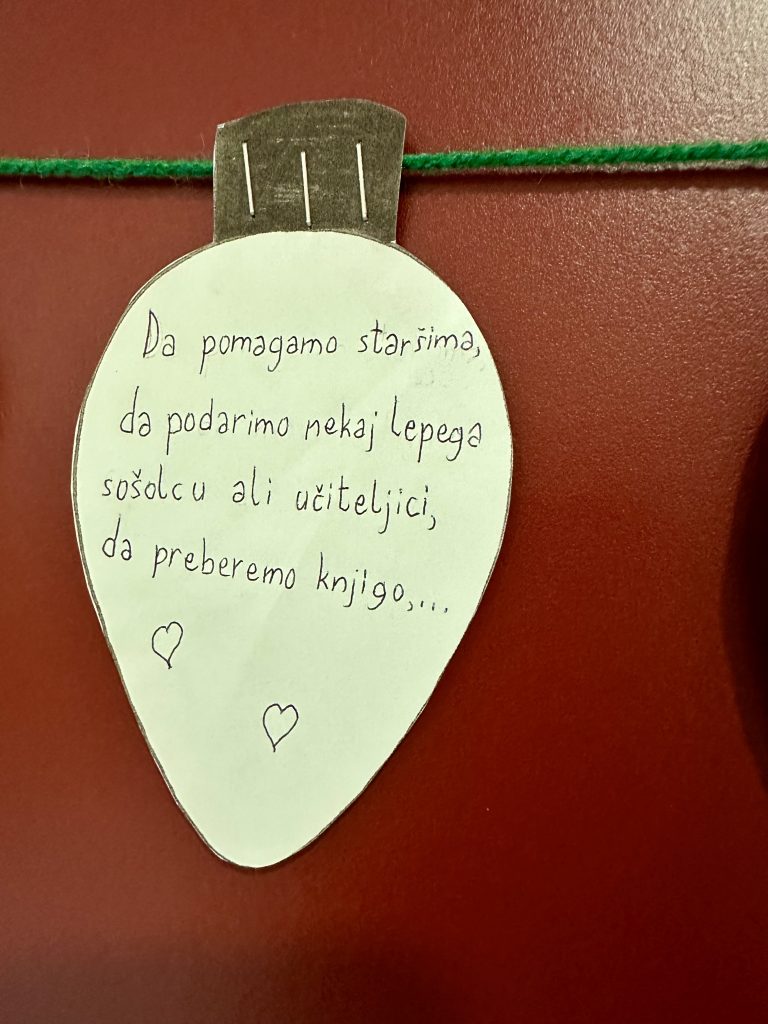 Da pomagamo staršima,
da podarimo nekaj lepega
sošolcu ali učiteljici,
da preberemo knjigo,...